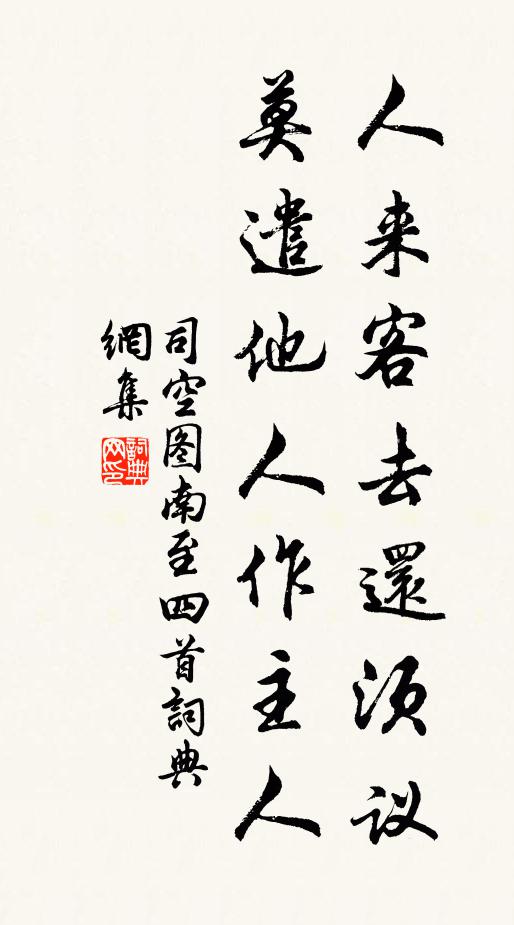 人来客去還须议
莫遣他人作主人
司空图南至四首詞典
網集
詞典
网印